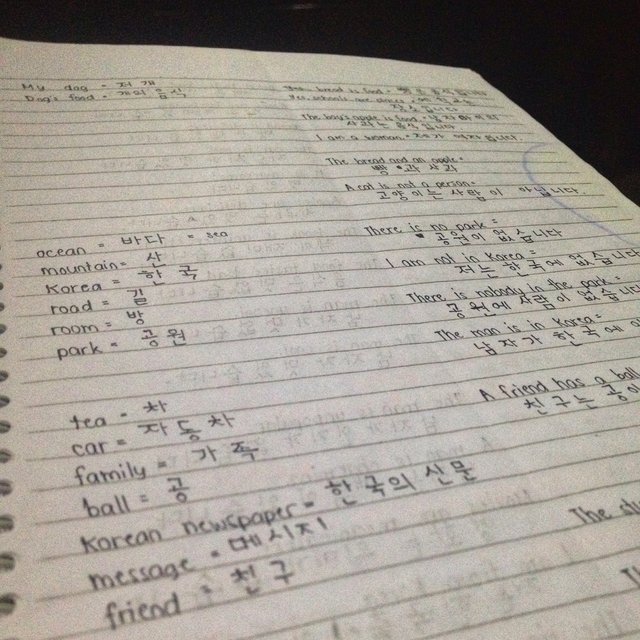 My dog = 저 개
Dog's food = 개의 음식
ocean = 바다 = sea
mountain = 산
Korea = 한국
road = 길
room = 방
park = 공원
tea = 차
car = 자동차
family = 가족
ball = 공
Korean newspaper = 한국의 신물
message = 메시지
friend = 친구
bread is food =
The boy's apple is food =
I am a woman =
The bread and an apple =
빵 과 사과
A cat is not a person =
고양이는 사람이 아닙니다
There is no park =
공원이 없습니다
I am not in Korea =
저는 한국에 없습니다
There is nobody in the park =
공원에 사람이 없습니
The man is in Korea =
남자가 한국에
A friend has a ball
친구는 공
The